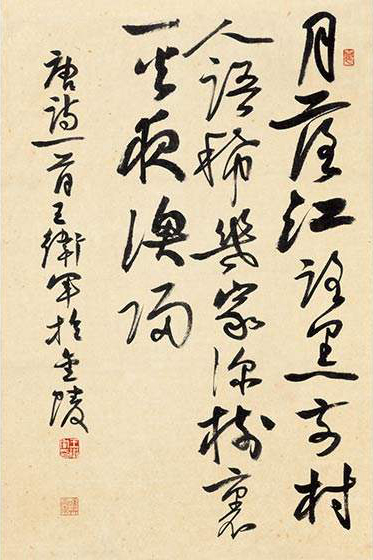 月落江路黑前村
人語稀幾家深樹裏
一火夜漁歸
唐詩一首王衛軍於金陵